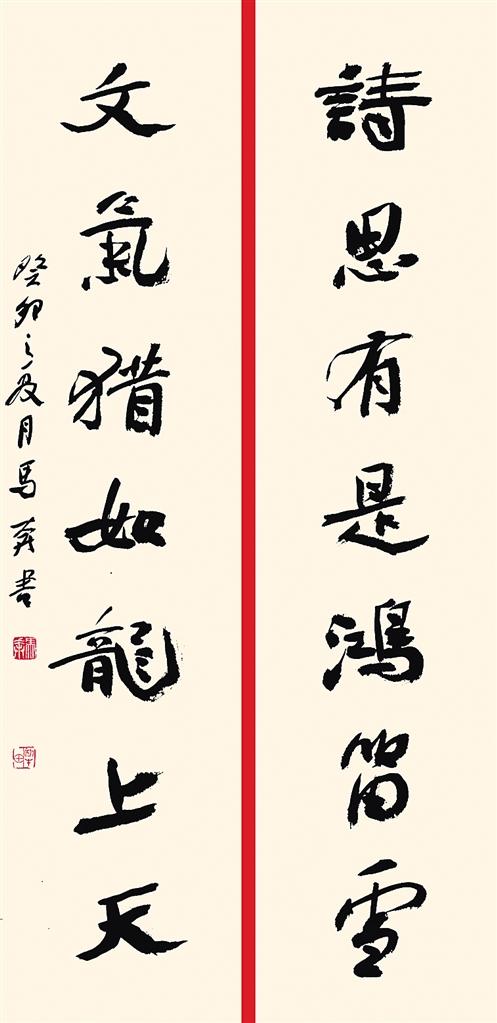 詩思有是鴻留雪
文氣猶如龍上天
癸卯之夏月馬奔書